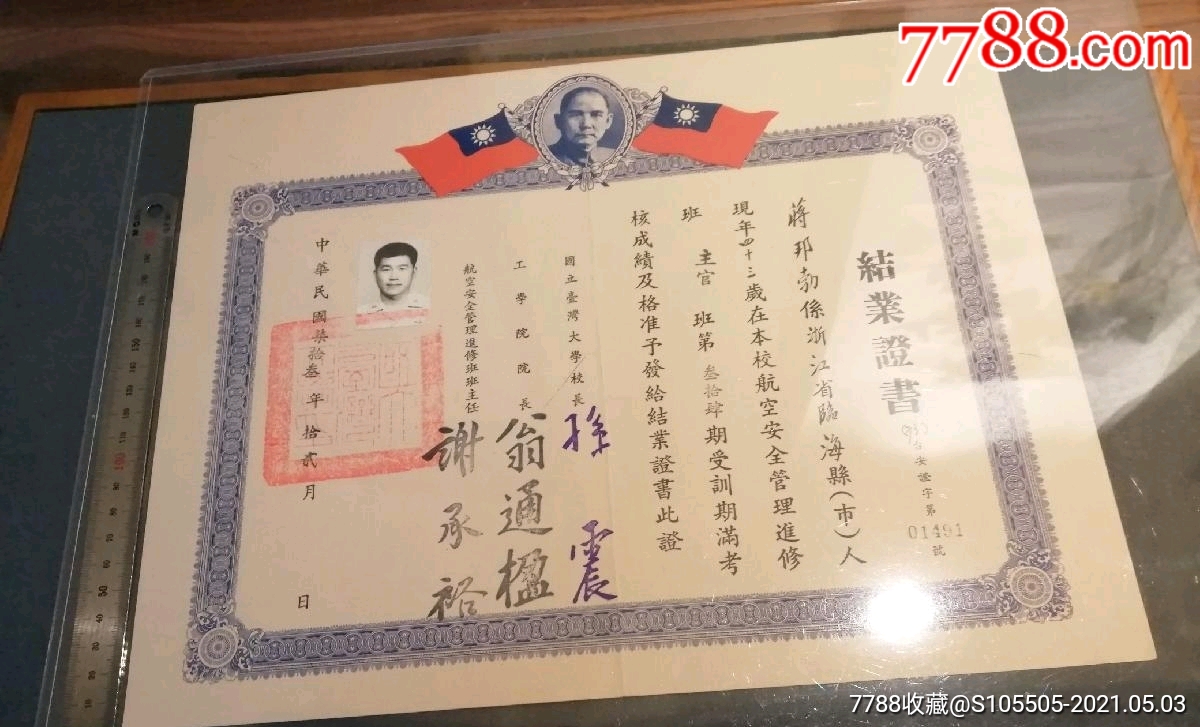 7788.com
結業證書
(73)安證字第01491號
蔣邦勃係浙江省臨海縣(市)人
現年四十三歲在本校航空安全管理進修
班主官班第叄拾肆期受訓期滿考
核成績及格准予發給結業證書此證
國立臺灣大學校長孫震
工學院院長翁通楹
航空安全管理進修班班主任謝承裕
中華民國柒拾叄年拾貳月日
7788收藏@S105505-2021.05.03